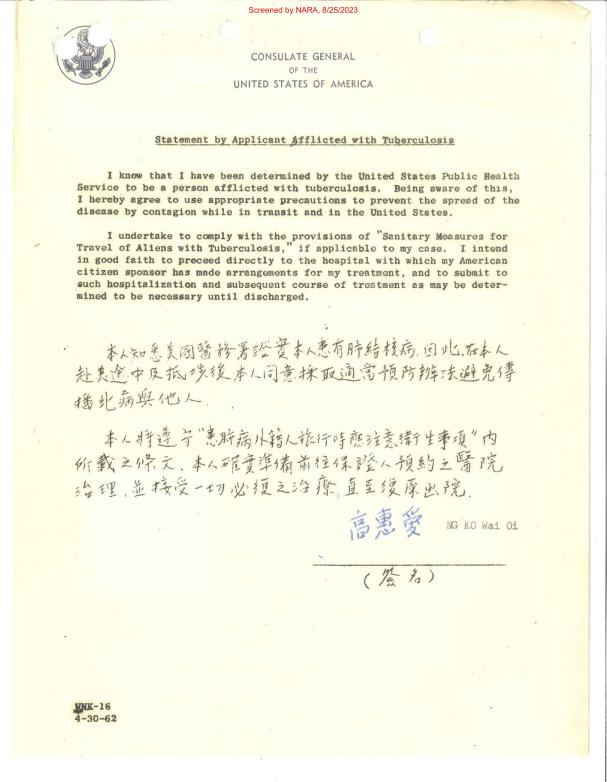 Screened by NARA, 8/25/2023
CONSULATE GENERAL
OF THE
UNITED STATES OF AMERICA
Statement by Applicant Afflicted with Tuberculosis
I know that I have been determined by the United States Public Health
Service to be a person afflicted with tuberculosis. Being aware of this,
I hereby agree to use appropriate precautions to prevent the spread of the
disease by contagion while in transit and in the United States.
I undertake to comply with the provisions of "Sanitary Measures for
Travel of Aliens with Tuberculosis," if applicable to my case. I intend
in good faith to proceed directly to the hospital with which my American
citizen sponsor has made arrangements for my treatment, and to submit to
such hospitalization and subsequent course of treatment as may be deter-
mined to be necessary until discharged.
本人知悉美國醫務署證實本人患有肺結核病,因此,在本人
赴美途中及抵埗後本人同意採取適當預防辦法避免傳
播此病與他人.
本人將遵守"患肺病外籍人旅行時應注意衛生事項"內
所載之條文.本人確實準備前往保證人預約之醫院
治理,並接受一切必須之治療,直至復原出院.
高惠愛 NG KO Wai Oi
(簽名)
NK-16
4-30-62